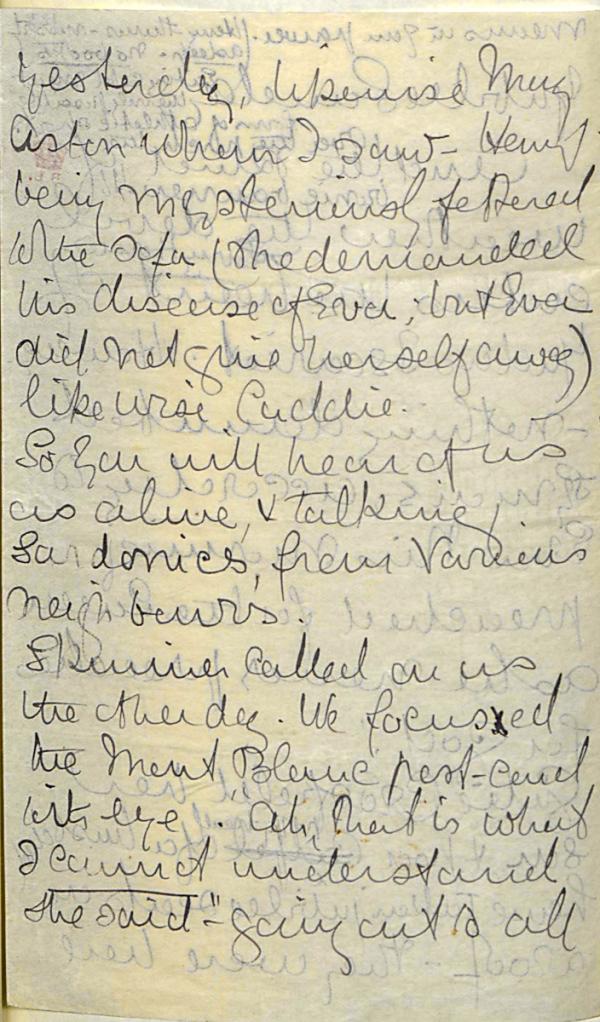 yesterday, likewise Mary
Aston whom I saw - Henry
being mysteriously fettered
to the sofa (she demanded
his disease of Eva; but Eva
did not give herself away)
likewise Caddie.
So you will hear of us
as alive, & talking,
Sardonics, from various
neighbours.
Skinner called on us
the other day. We focussed
the Mont Blanc post-card
to its eye. "Ah, that is what
I cannot understand
she said" - going out to all